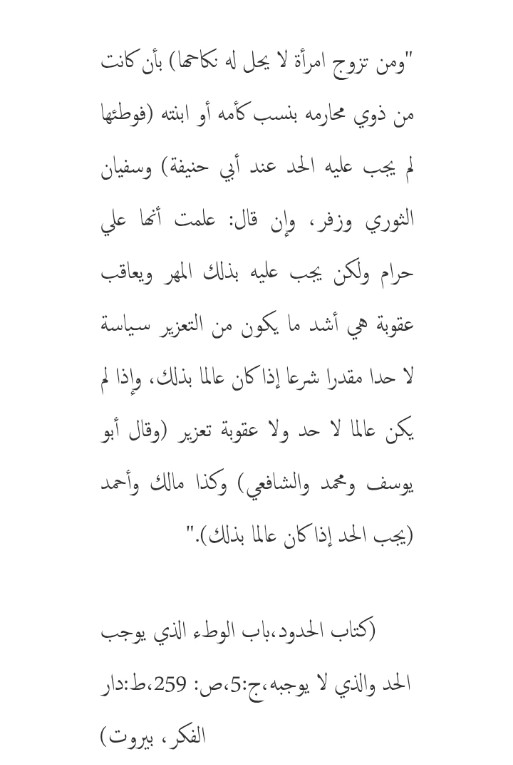 "ومن تزوج امرأة لا يحل له نكاحها) بأن كانت
من ذوي محارمه بنسب كأمه أو ابنته (فوطئها
لم يجب عليه الحد عند أبي حنيفة) وسفيان
الثوري وزفر، وإن قال: علمت أنها علي
حرام ولكن يجب عليه بذلك المهر ويعاقب
عقوبة هي أشد ما يكون من التعزير سياسة
لا حدا مقدرا شرعا إذا كان عالما بذلك، وإذا لم
يكن عالما لا حد ولا عقوبة تعزير (وقال أبو
يوسف ومحمد والشافعي) وكذا مالك وأحمد
(يجب الحد إذا كان عالما بذلك)."
(كتاب الحدود،باب الوطء الذي يوجب
الحد والذي لا يوجبه،ج:5،ص: 259،ط:دار
الفكر، بيروت)